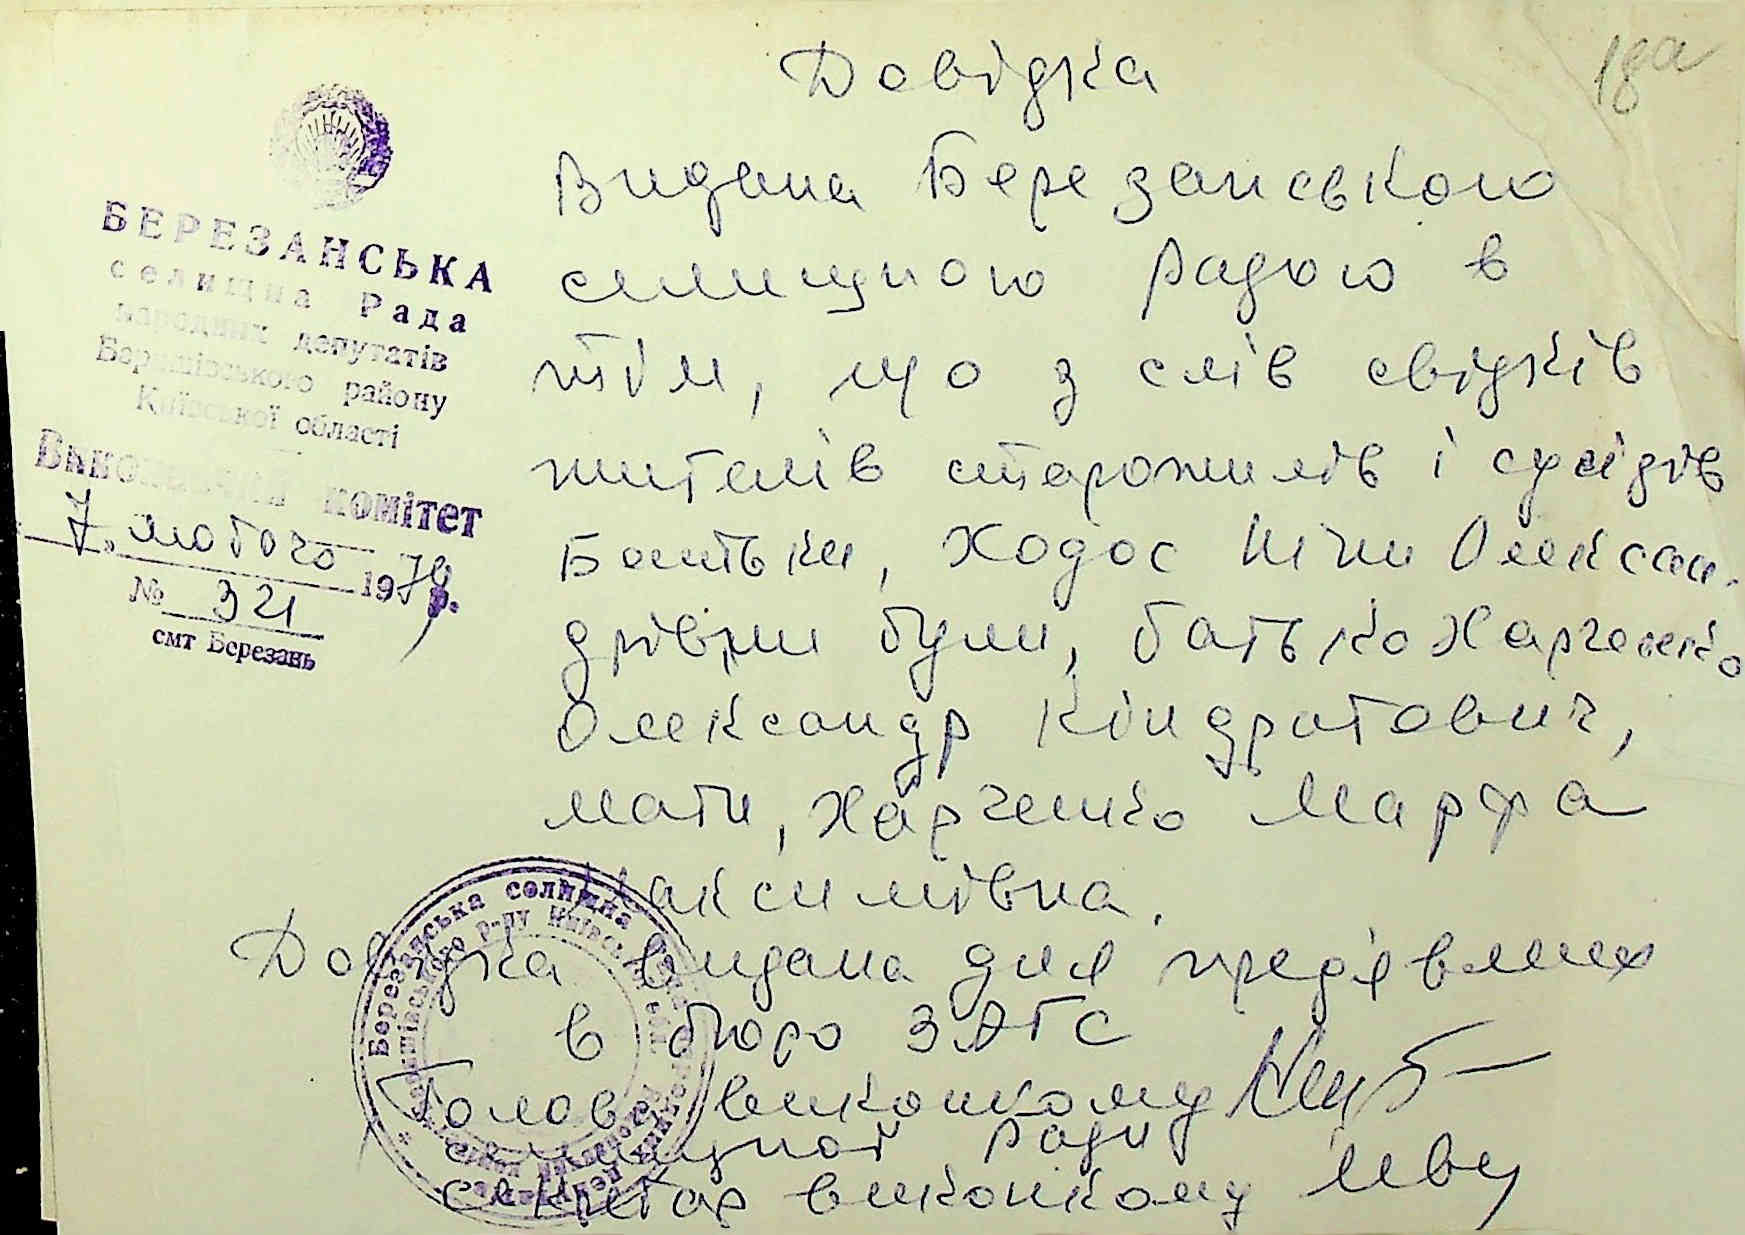 18а
Довідка
БЕРЕЗАНСЬКА
селищна Рада
народних депутатів
Баришівського району
Київської області
Виконавчий комітет
7. лютого 1979 р.
№ 321
смт Березань
Видана Березанською
селищною радою в
тім, що з слів свідків
жителів старожилів і сусідів
Батьки, Ходос Ніни Олексан-
дрівни були, батько Харченко
Олександр Кіндратович,
мати, Харченко Марфа
Максимівна.
Довідка видана для пред'явлених
в бюро ЗАГС
Голова виконкому
селищної ради
секретар виконкому
Березанська селищна Рада